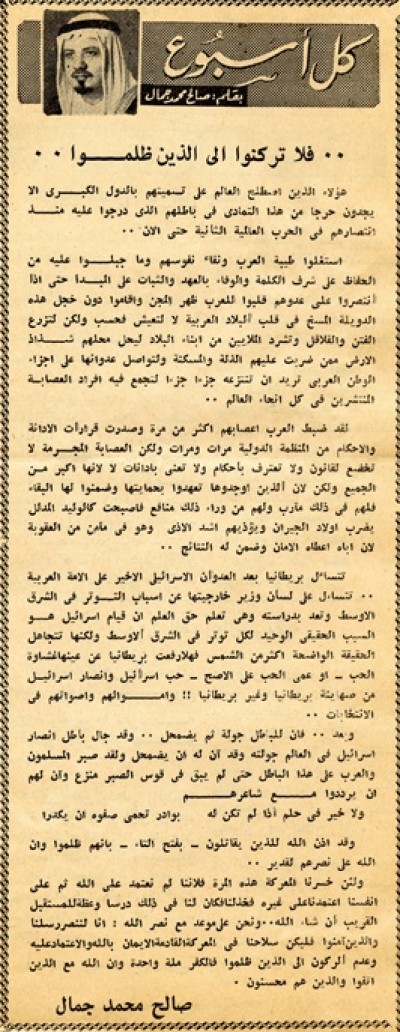 كل أسبوع
بقلم : صالح محمد جمال
٠٠ فلا تركنوا الى الذين ظلمـــوا ٠٠
هؤلاء الذين اصطلح العالم على تسميتهم بالدول الكبرى الا
يجدون حرجا من هذا التمادى فى باطلهم الذى درجوا عليه منذ
انتصارهم فى الحرب العالمية الثانية حتى الان ٠٠
استغلوا طيبة العرب ونقاء نفوسهم وما جبلوا عليه من
الحفاظ على شرف الكلمة والوفاء بالعهد والثبات على المبدأ حتى اذا
انتصروا على عدوهم قلبوا للعرب ظهر المجن واقاموا دون خجل هذه
الدويلة المسخ فى قلب البلاد العربية لا لتعيش فحسب ولكن لتزرع
الفتن والقلاقل وتشرد الملايين من ابناء البلاد ليحل محلهم شـذاذ
الارض ممن ضربت عليهم الذلة والمسكنة ولتواصل عدوانها على اجزاء
الوطن العربى تريد ان تنتزعه جزءا جزءا لتجمع فيه افراد العصابة
المنتشرين فى كل انحاء العالم ٠٠
لقد ضبط العرب اعصابهم اكثر من مرة وصدرت قرارات الادانة
والاحكام من المنظمة الدولية مرات ومرات ولكن العصابة المجرمة لا
تخضع لقانون ولا تعترف بأحكام ولا تعنى بادانات لا لانها اكبر من
الجميع ولكن لان الذين اوجدوها تعهدوا بحمايتها وضمنوا لها البقاء
فلهم فى ذلك مآرب ولهم من وراء ذلك منافع فاصبحت كالوليد المدلل
يضرب اولاد الجيران ويؤذيهم اشد الاذى وهو فى مأمن من العقوبة
لان اباه اعطاه الامان وضمن له النتائج ٠٠
تتساءل بريطانيا بعد العدوان الاسرائيلى الاخير على الامة العربية
٠٠ تتساءل على لسان وزير خارجيتها عن اسباب التوتر فى الشرق
الاوسط وتعد بدراسته وهى تعلم حق العلم ان قيام اسرائيل هـو
السبب الحقيقى الوحيد لكل توتر فى الشرق الاوسط ولكنها تتجاهل
الحقيقة الواضحة اكثر من الشمس فهلا رفعت بريطانيا عن عينها غشاوة
الحب ــ او عمى الحب على الاصح ــ حب اسرائيل وانصار اسرائيل
من صهاينة بريطانيا وغير بريطانيا !! وامـوالهم واصواتهم فى
الانتخابات ٠٠
وبعد ٠٠ فان للباطل جولة ثم يضمحل ٠٠ وقد جال باطل انصار
اسرائيل فى العالم جولته وقد آن له ان يضمحل ولقد صبر المسلمون
والعرب على هذا الباطل حتى لم يبق فى قوس الصبر منزع وآن لهم
ان يرددوا مـــع شاعرهــم
ولا خير فى حلم اذا لم تكن له بوادر تحمى صفوه ان يكدرا
وقد اذن الله للذين يقاتلون ــ بفتح التاء ــ بانهم ظلموا وان
الله على نصرهم لقدير ٠٠
ولئن خسرنا المعركة هذه المرة فلاننا لم نعتمد على الله ثم على
انفسنا اعتمدنا على غيره فخذلنا فكان لنا فى ذلك درسا وعظة للمستقبل
القريب أن شاء الله٠٠ونحن على موعد مع نصر الله : انا لننصر رسلنا
والذين آمنوا فليكن سلاحنا فى المعركة القادمة الايمان بالله والاعتماد عليه
وعدم الركون الى الذين ظلموا فالكفر ملة واحدة وان الله مع الذين
اتقوا والذين هم محسنون ٠
صالح محمد جمال